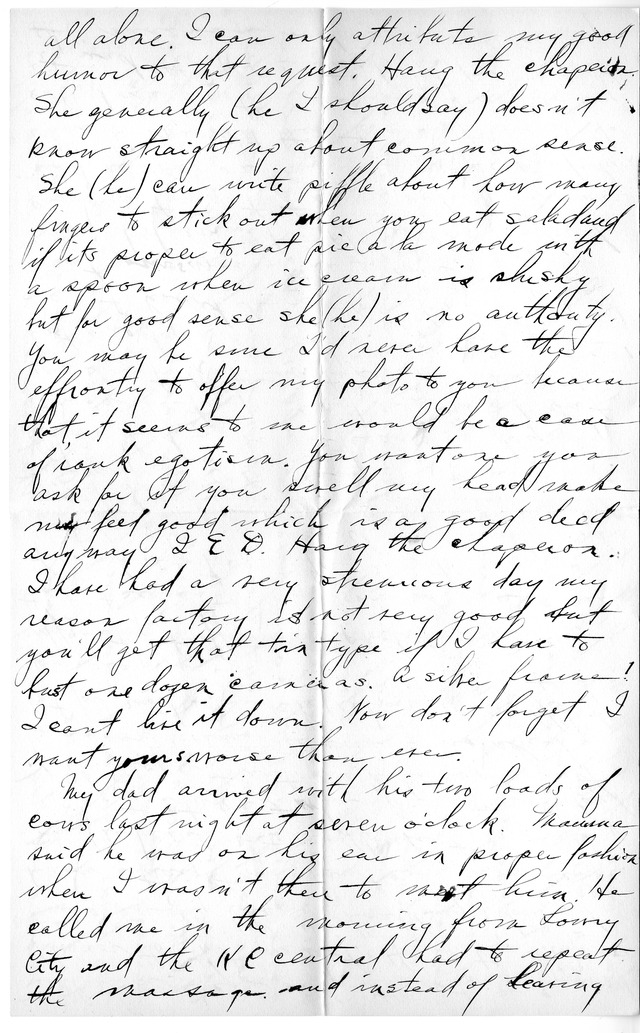 all alone. I can only attribute my good
humor to that request. Hang the chaperon.
She generally (he I should say) doesn't
know straight up about common sense.
She (he) can write piffle about how many
fingers to stick out when you eat salad and
if its proper to eat pie a la mode with
a spoon when ice cream is slushy
but for good sense she (he) is no authority.
You may be sure I'd never have the
effrontry to offer my photo to you because
that, it seems to me would be a case
of rank egotism. You want one you
ask for it you swell my head make
me feel good which is a good deed
anyway Q E D. Hang the chaperon.
I have had a very strenuous day my
reason factory is not very good but
you'll get that tin type if I have to
bust one dozen cameras. A silver frame!
I cant live it down. Now don't forget I
want yours worse than ever.
My dad arrived with his two loads of
cows last night at seven o'clock. Mamma
said he was on his ear in proper fashion
when I wasn't there to meet him. He
called me in the morning from Lowry
City and the K C central had to repeat
the massage. and instead of leaving